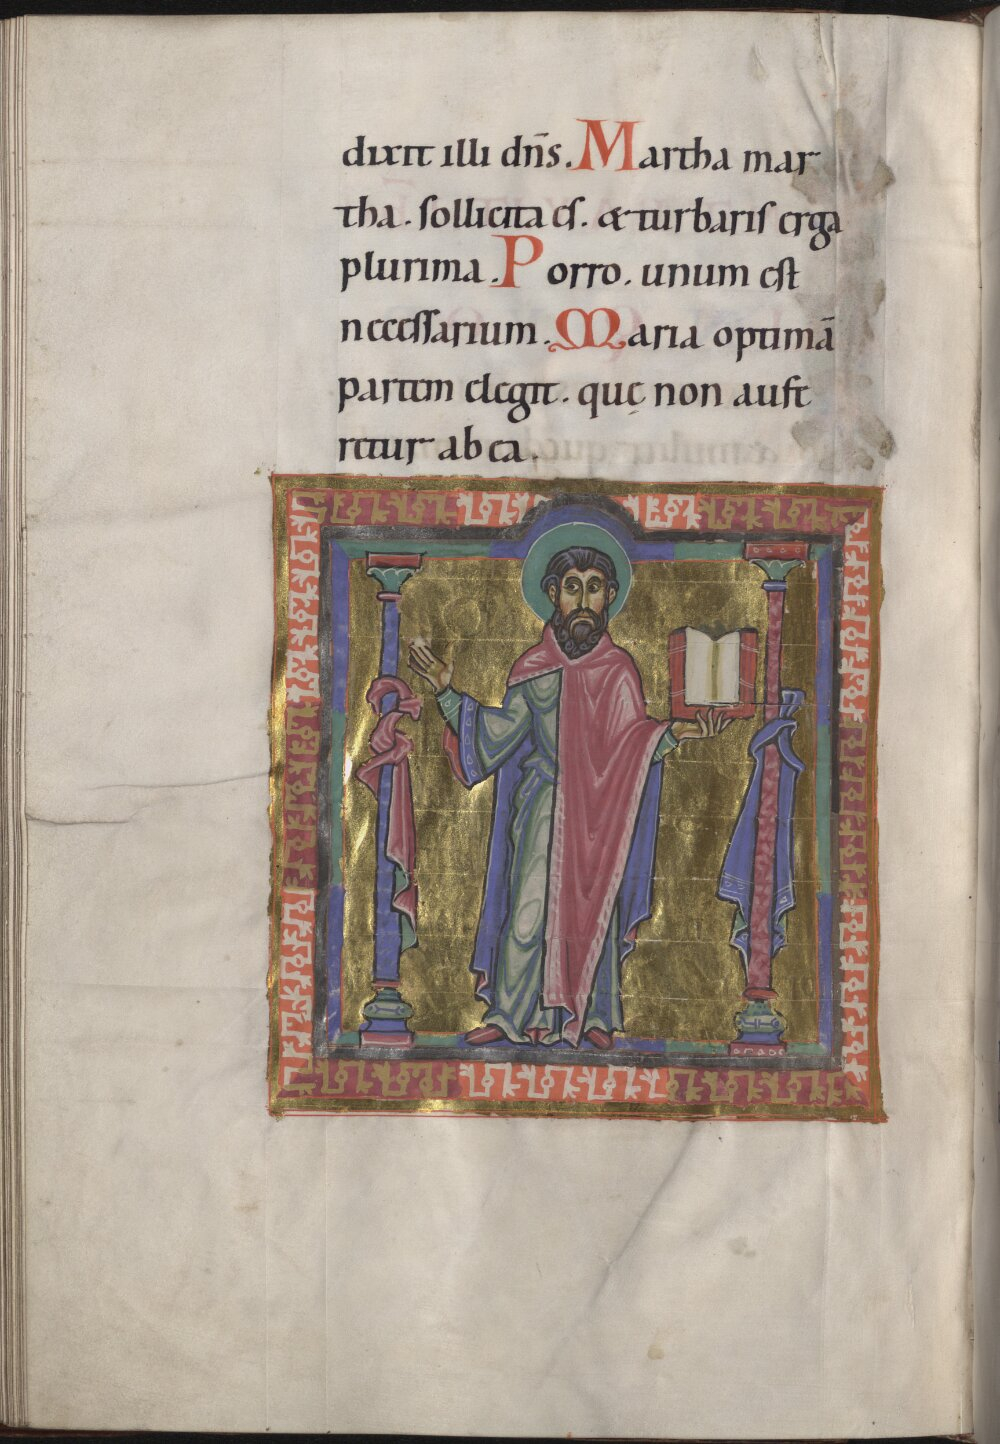 dixit illi dn̄s. Martha mar
tha. sollicita es. & turbaris erga
plurima. Porro. unum est
necessarium. Maria optimā
partem elegit. quę non aufe
retur ab ea.